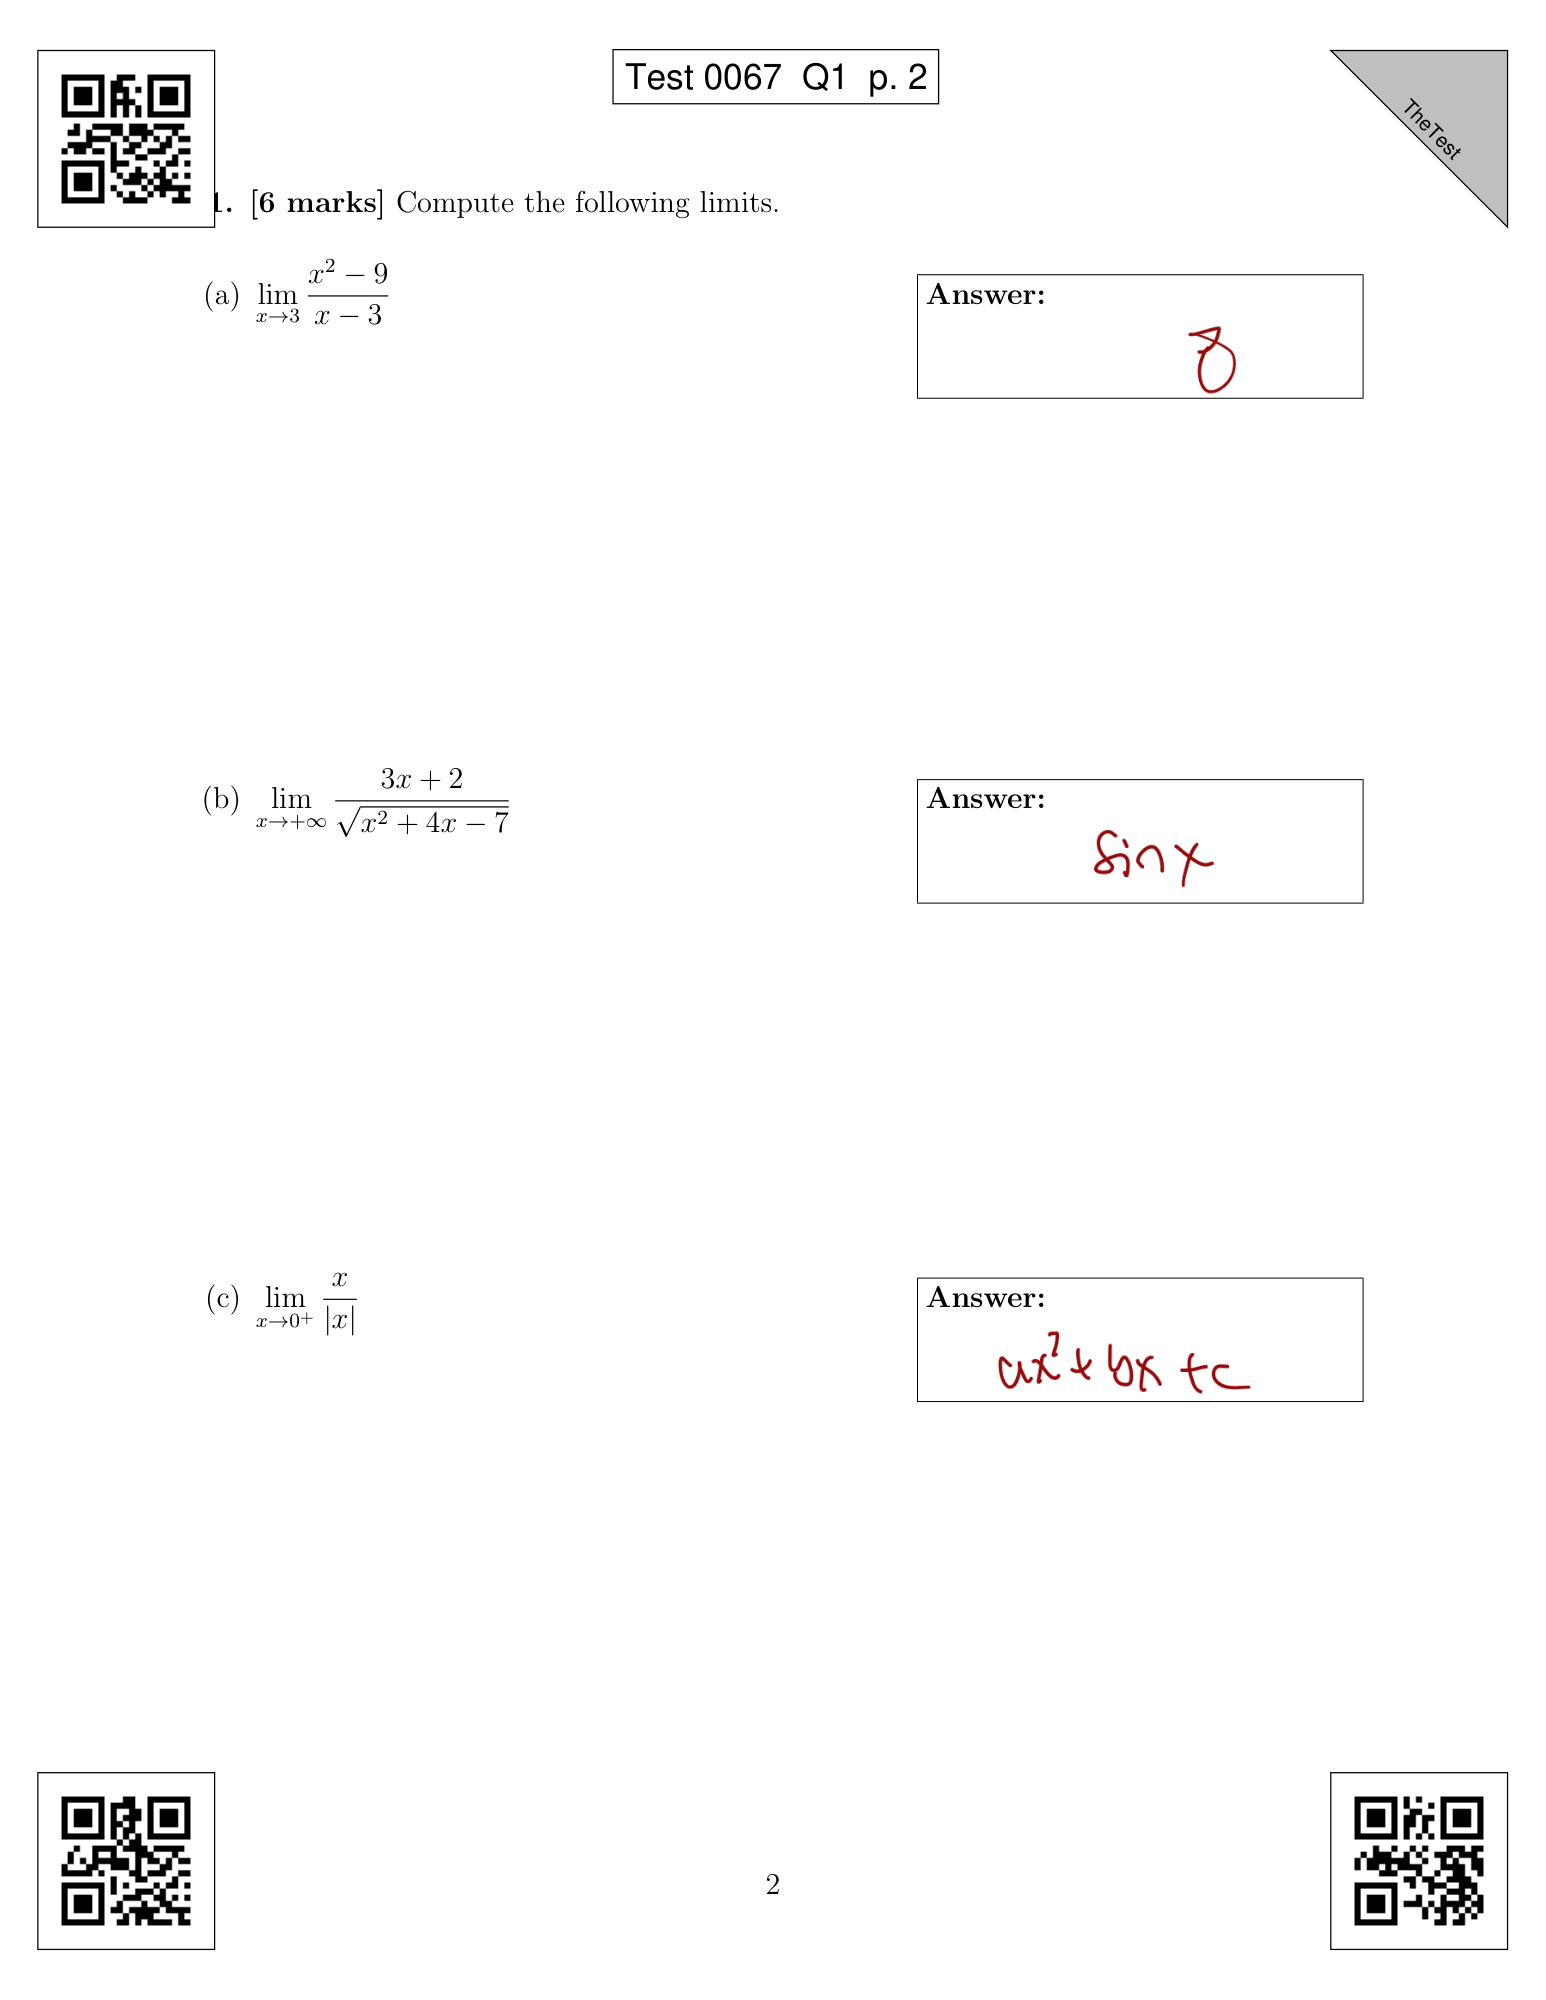 Test 0067 Q1 p. 2
TheTest
1. [6 marks] Compute the following limits.
(a) lim x→3 x² − 9 / x − 3
Answer:
8
(b) lim x→+∞ 3x + 2 / √x² + 4x − 7
Answer:
sin x
(c) lim x→0⁺ x / |x|
Answer:
ax² + bx + c
2